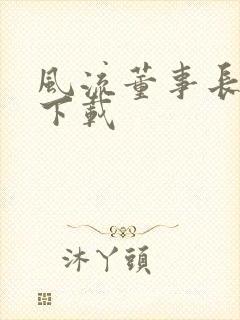 風流董事長
下載
沐丫頭